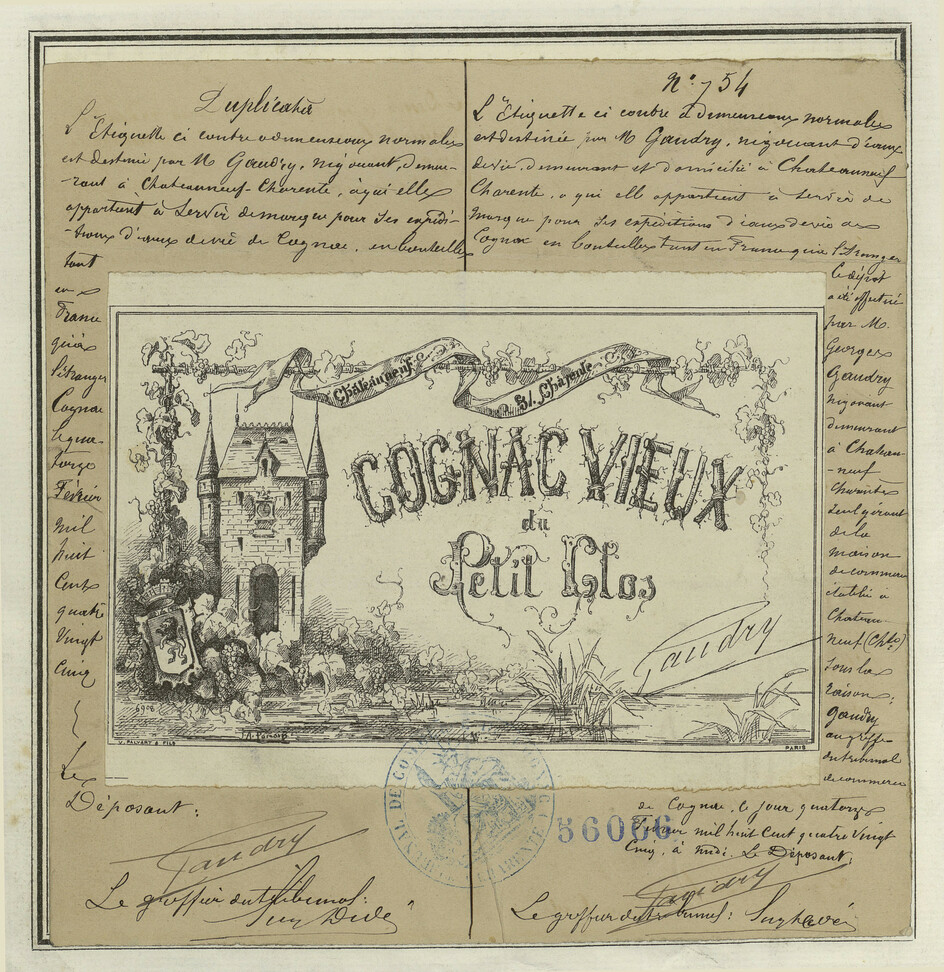 Duplicata
L'Etiquette ci contre a dimensions normales
est destiné par M Gaudry, négociant, demeu-
-rant à Chateauneuf-Charente, à qui elle
appartient à servir de marque pour ses expédi-
-tions d'eaux de vie de Cognac, en bouteilles
tant
en
France
qu'à
l'étranger
Cognac
le qua-
torze
Février
mil
huit
Cent
quatre
Vingt
Cinq
Le
Déposant:
Gaudry
Le greffier du tribunal:
N° 754
L'Etiquette ci contre a dimensions normales
est destinée par M Gaudry, négociant d'eaux
de vie, demeurant et domicilié à Chateauneuf
Charente, a qui elle appartient à servir de
marque pour ses expéditions d'eaux de vie de
Cognac en bouteilles tant en France qu'à l'étranger
Le dépôt
a été effectué
par M.
Georges
Gaudry
négociant
demeurant
à Chateau-
-neuf
Charente
seul gérant
de la
maison
de commerce
établie à
Chateau-
neuf (Chte)
sous la
raison:
Gaudry
au greffe
du tribunal
de commerce
de Cognac, le jour quatorze
Février mil huit cent quatre vingt
Cinq, à midi. Le Déposant:
Gaudry
Le greffier du tribunal:
Châteauneuf s/. Charente
COGNAC VIEUX
du
Petit Clos
Gaudry
6906
V. PALYART & FILS
PARIS
56066